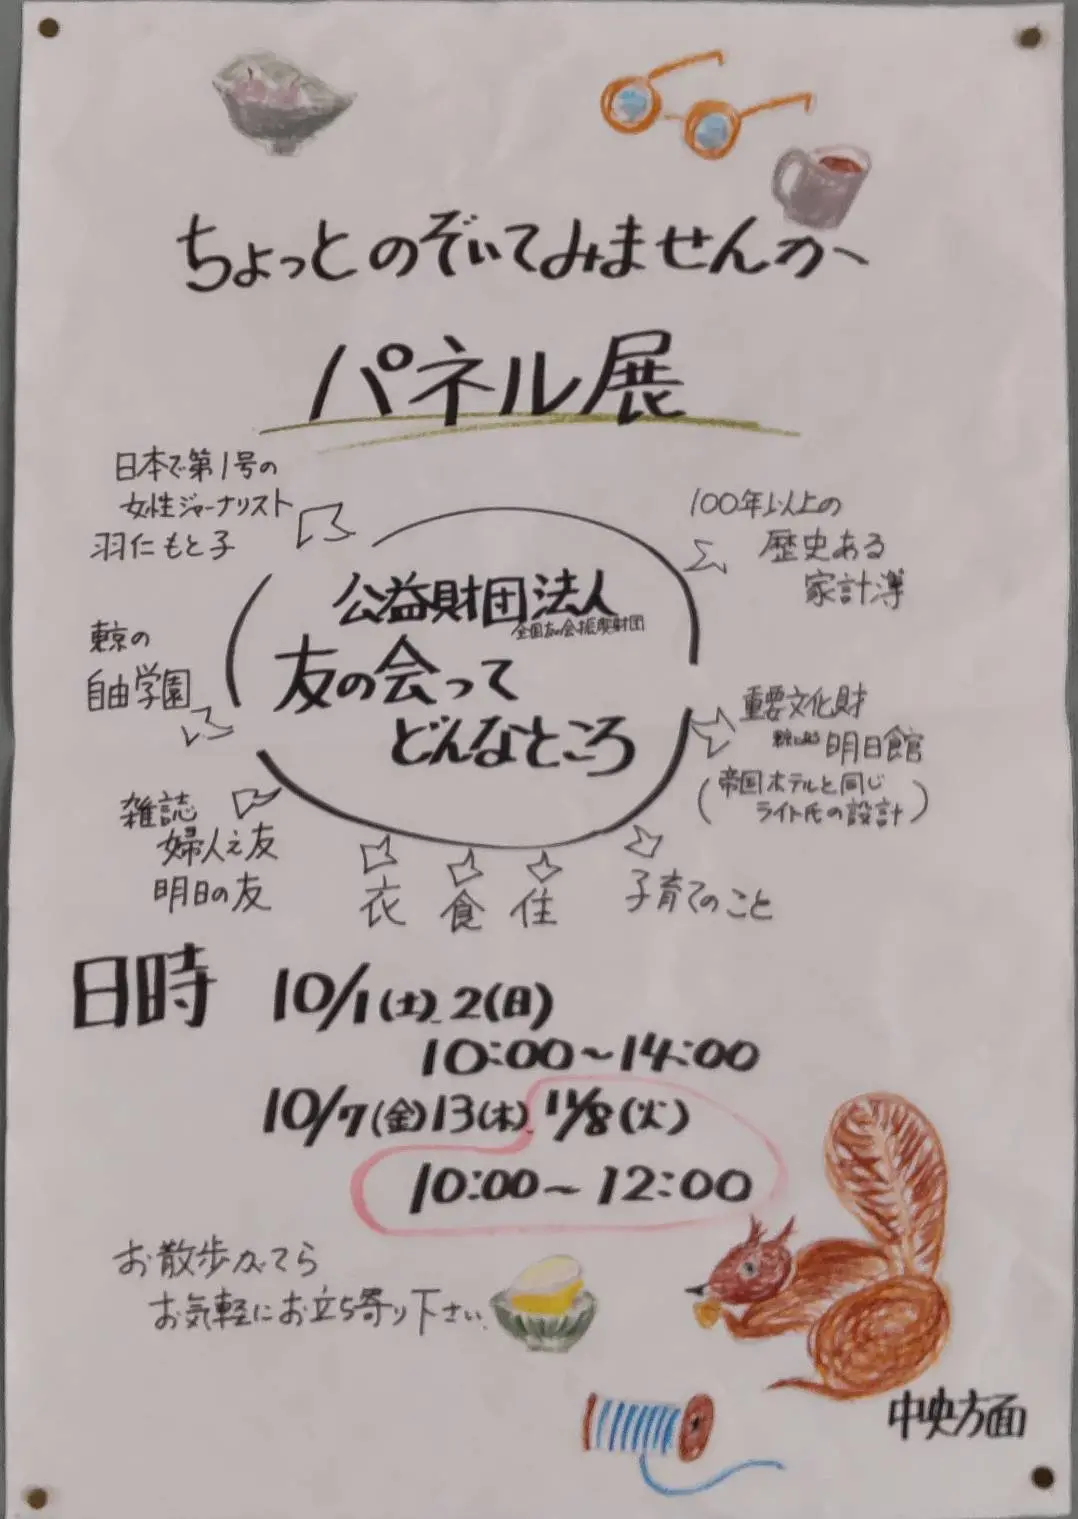 ちょっとのぞいてみませんか
パネル展
日本で第1号の
女性ジャーナリスト
羽仁もと子
100年以上の
歴史ある
家計簿
公益財団法人
全国友の会振興財団
友の会って
どんなところ
東京の
自由学園
重要文化財
明日館
(帝国ホテルと同じ
ライト氏の設計)
雑誌
婦人之友
明日の友
衣 食 住
子育てのこと
日時 10/1(土)、2(日)
10:00〜14:00
10/7(金)13(木)、11/8(火)
10:00〜12:00
お散歩がてら
お気軽にお立ち寄り下さい。
中央方面